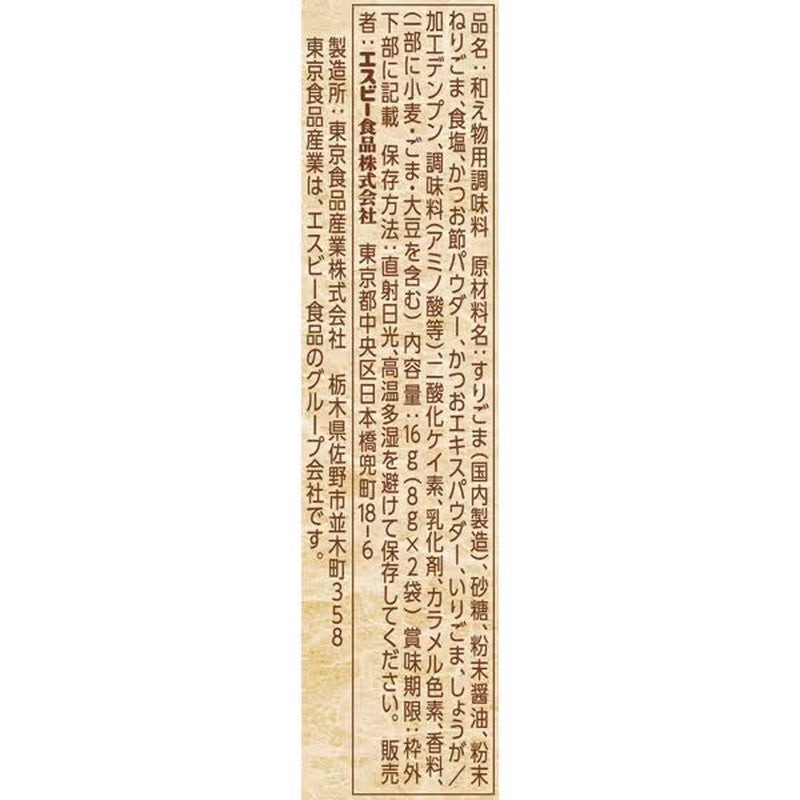 品名：和え物用調味料　原材料名：すりごま（国内製造）、砂糖、粉末醤油、粉末
ねりごま、食塩、かつお節パウダー、かつおエキスパウダー、いりごま、しょうが／
加工デンプン、調味料（アミノ酸等）、二酸化ケイ素、乳化剤、カラメル色素、香料、
（一部に小麦・ごま・大豆を含む）　内容量：16g（8g×2袋）　賞味期限：枠外
下部に記載　保存方法：直射日光、高温多湿を避けて保存してください。　販売
者：エスビー食品株式会社　東京都中央区日本橋兜町18-6
製造所：東京食品産業株式会社　栃木県佐野市並木町358
東京食品産業は、エスビー食品のグループ会社です。